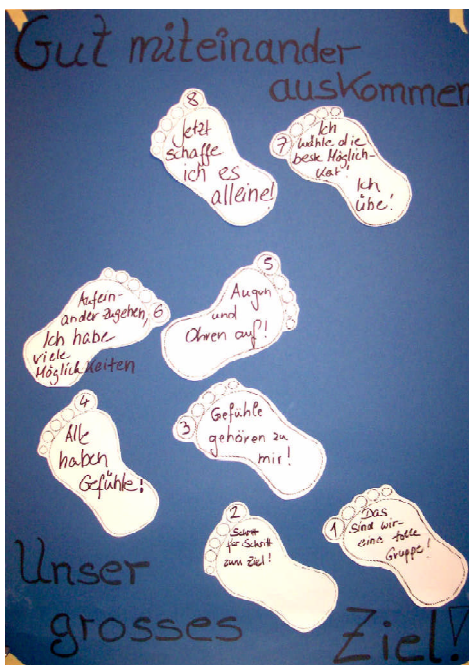 Gut miteinander
auskommen
8
Jetzt
schaffe
ich es
alleine!
7
Ich
wähle die
beste Möglich-
keit!
Ich
übe!
6
Aufein-
ander zugehen,
Ich habe
viele
Möglichkeiten
5
Augen
und
Ohren auf!
4
Alle
haben
Gefühle!
3
Gefühle
gehören zu
mir!
2
Schritt
für Schritt
zum Ziel!
1
Das
sind wir-
eine tolle
Gruppe!
Unser
grosses
Ziel!